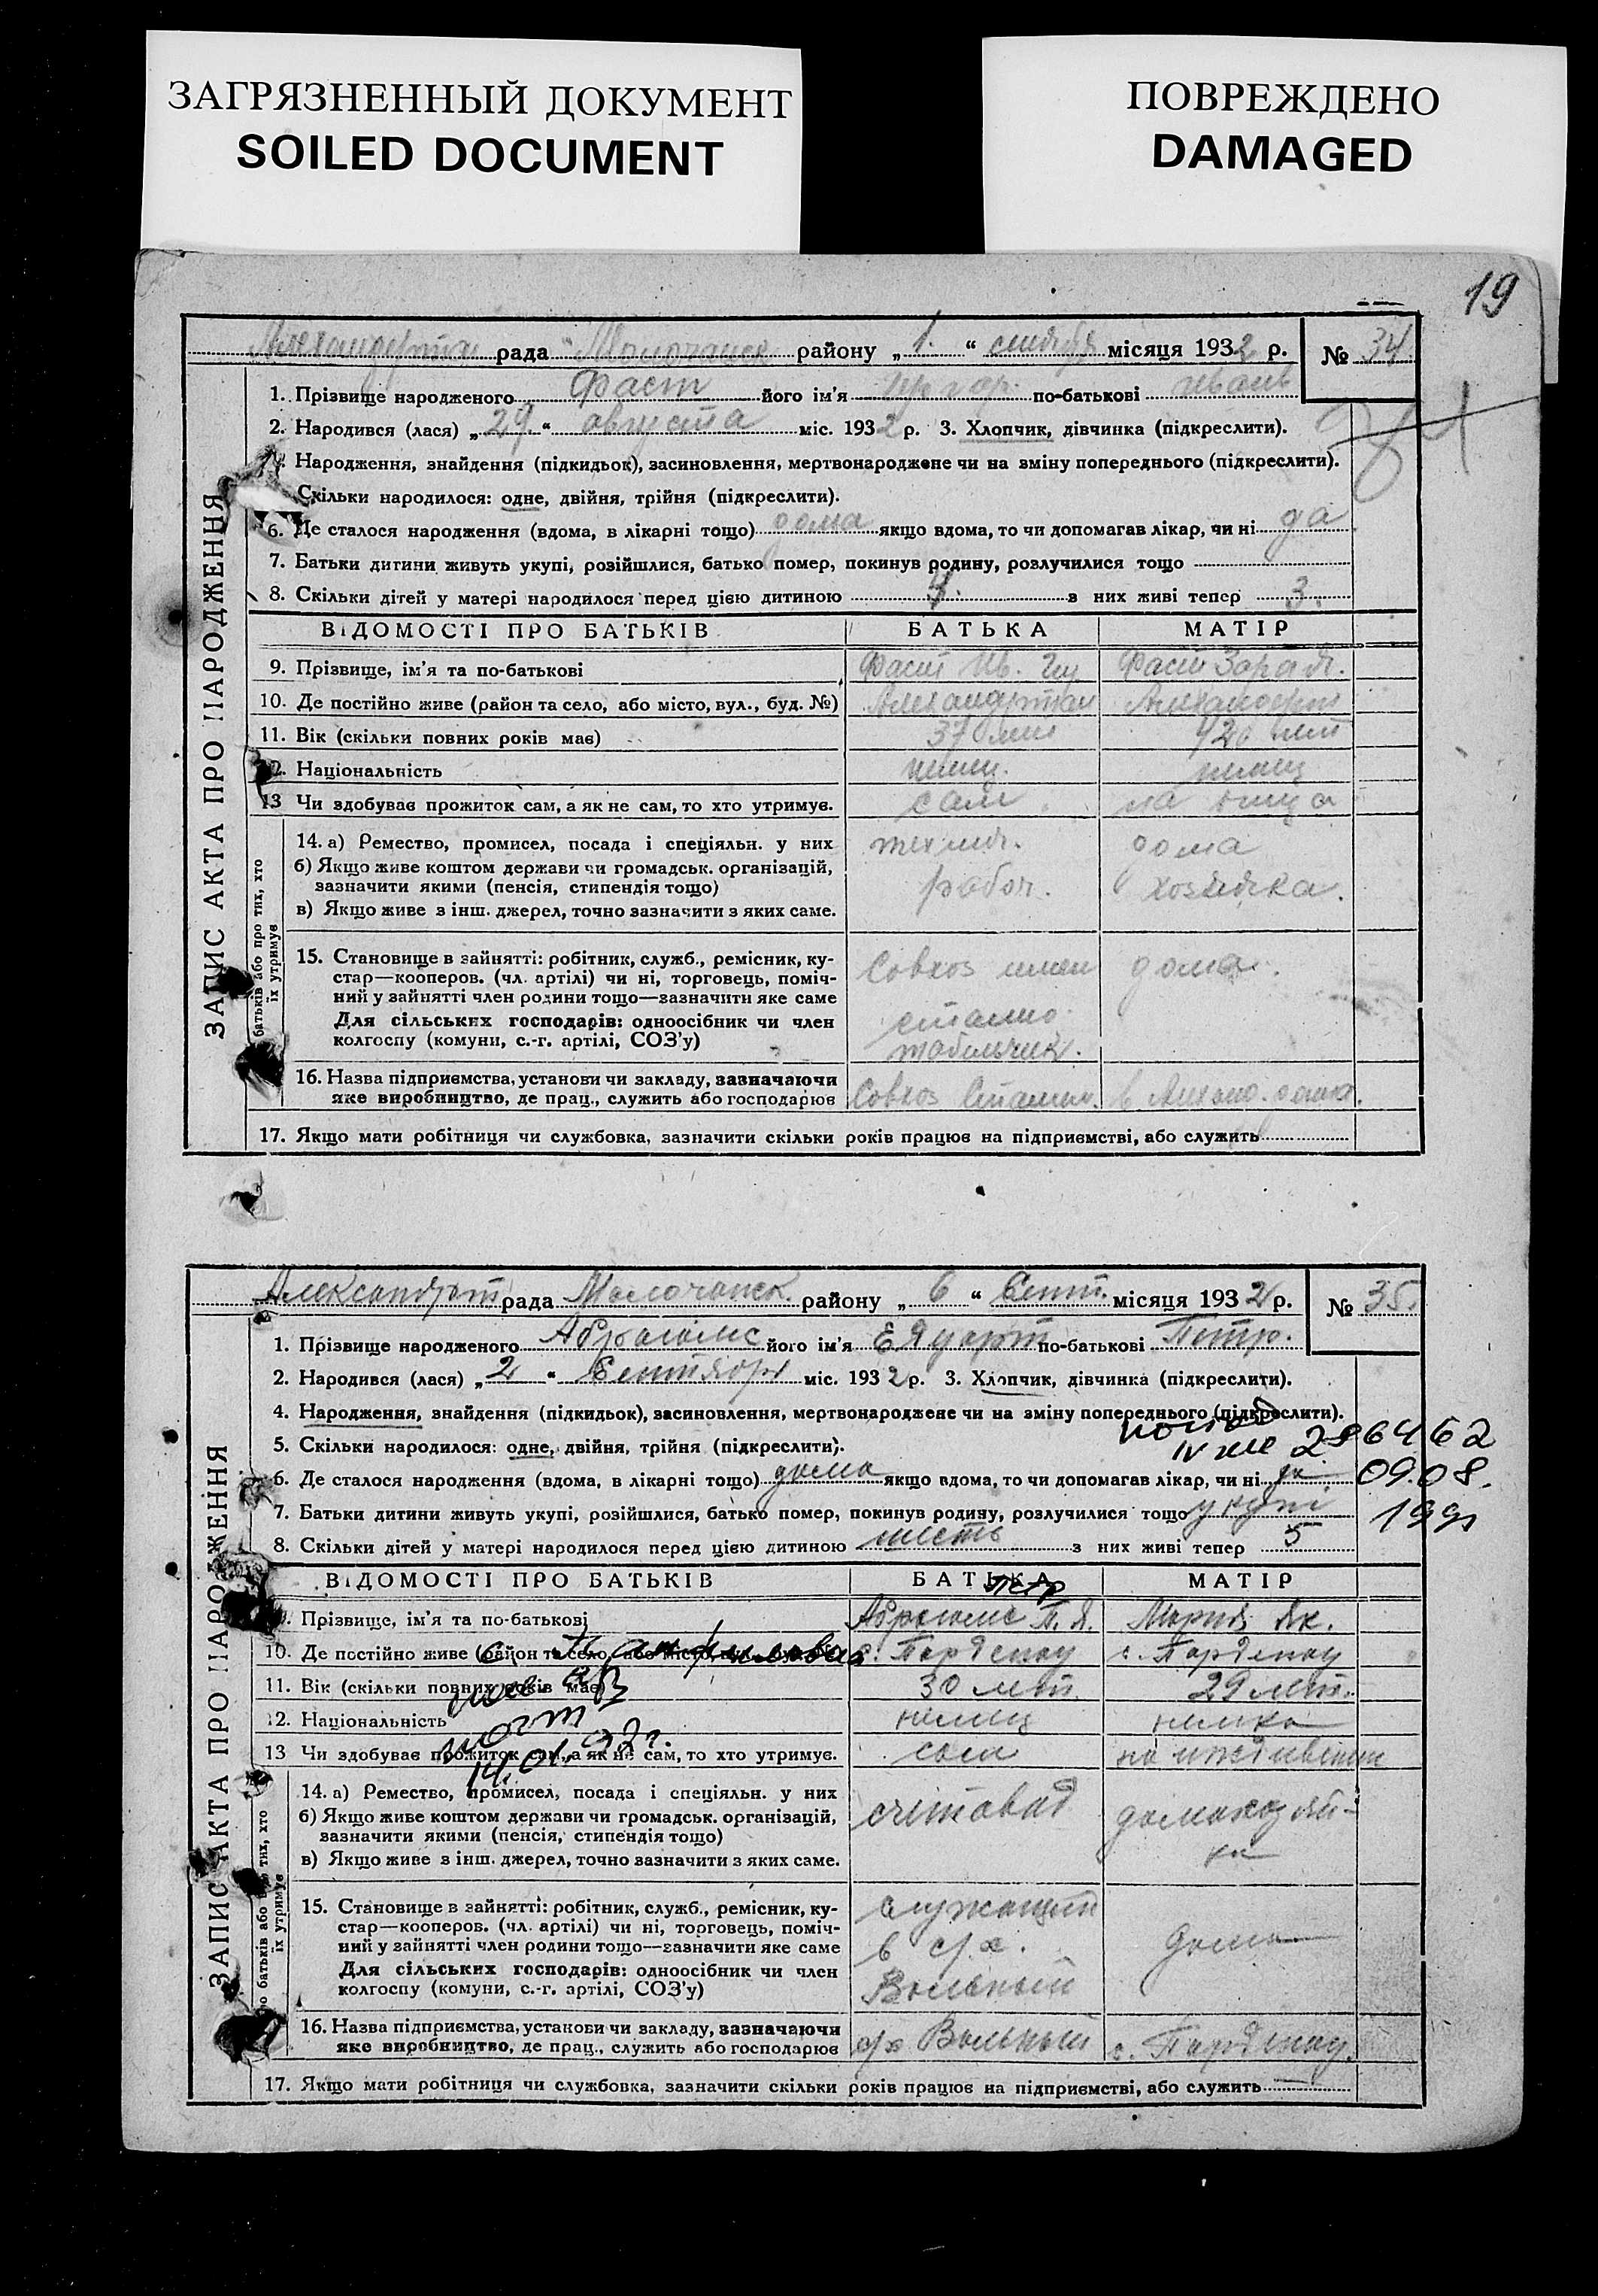 ЗАГРЯЗНЕННЫЙ ДОКУМЕНТ
SOILED DOCUMENT
ПОВРЕЖДЕНО
DAMAGED
19
рада Молочанск району „1.“ місяця 1932 р. № 34
1. Прізвище народженого Фаст його ім'я по-батькові
2. Народився (лася) „29“ августа міс. 1932 р. 3. Хлопчик, дівчинка (підкреслити).
Народження, знайдення (підкидьок), засиновлення, мертвонароджене чи на зміну попереднього (підкреслити).
Скільки народилося: одне, двійня, трійня (підкреслити).
6. Де сталося народження (вдома, в лікарні тощо) дома якщо вдома, то чи допомагав лікар, чи ні да
7. Батьки дитини живуть укупі, розійшлися, батько помер, покинув родину, розлучилися тощо
8. Скільки дітей у матері народилося перед цією дитиною 4. з них живі тепер 3.
ЗАПИС АКТА ПРО НАРОДЖЕННЯ
ВІДОМОСТІ ПРО БАТЬКІВ БАТЬКА МАТІР
9. Прізвище, ім'я та по-батькові Фаст Ив. Фаст
10. Де постійно живе (район та село, або місто, вул., буд. №)
11. Вік (скільки повних років має) 37 лет лет
12. Національність немец. немец
13 Чи здобував прожиток сам, а як не сам, то хто утримує. сам
батьків або про тих, хто їх утримує
14. а) Ремество, промисел, посада і спеціяльн. у них дома
б) Якщо живе коштом держави чи громадськ. організацій,
зазначити якими (пенсія, стипендія тощо) рабоч. хозяйка.
в) Якщо живе з інш. джерел, точно зазначити з яких саме.
15. Становище в зайнятті: робітник, служб., ремісник, ку-
стар—кооперов. (чл. артілі) чи ні, торговець, поміч- Совхоз дома.
ний у зайнятті член родини тощо—зазначити яке саме
Для сільських господарів: одноосібник чи член
колгоспу (комуни, с.-г. артілі, СОЗ'у) табельчик.
16. Назва підприємства, установи чи закладу, зазначаючи
яке виробництво, де прац., служить або господарює Совхоз
17. Якщо мати робітниця чи службовка, зазначити скільки років працює на підприємстві, або служить
Александрт рада Молочанск. району „6“ Сент. місяця 1932 р. № 35.
1. Прізвище народженого Абрагамс його ім'я Едуарт по-батькові Петр.
2. Народився (лася) „2“ Сентября міс. 1932 р. 3. Хлопчик, дівчинка (підкреслити).
4. Народження, знайдення (підкидьок), засиновлення, мертвонароджене чи на зміну попереднього (підкреслити).
5. Скільки народилося: одне, двійня, трійня (підкреслити).
296462
6. Де сталося народження (вдома, в лікарні тощо) дома якщо вдома, то чи допомагав лікар, чи ні да
09.08.
7. Батьки дитини живуть укупі, розійшлися, батько помер, покинув родину, розлучилися тощо укупі
1991
8. Скільки дітей у матері народилося перед цією дитиною шесть з них живі тепер 5
ЗАПИС АКТА ПРО НАРОДЖЕННЯ
ВІДОМОСТІ ПРО БАТЬКІВ БАТЬКА МАТІР
Петр
Прізвище, ім'я та по-батькові Абрагамс П. Я. Мария Як.
10. Де постійно живе (район та село, або місто, вул., буд. №) с. Парденау с. Парденау
11. Вік (скільки повних років має) 30 лет. 29 лет.
12. Національність немец немка
14.01.92г.
13 Чи здобував прожиток сам, а як не сам, то хто утримує. сам на иждивении
батьків або тих, хто їх утримує
14. а) Ремество, промисел, посада і спеціяльн. у них счетовод домохозяй-
б) Якщо живе коштом держави чи громадськ. організацій,
зазначити якими (пенсія, стипендія тощо) ка
в) Якщо живе з інш. джерел, точно зазначити з яких саме.
15. Становище в зайнятті: робітник, служб., ремісник, ку- служащий
стар—кооперов. (чл. артілі) чи ні, торговець, поміч-
ний у зайнятті член родини тощо—зазначити яке саме в с/х. дома
Для сільських господарів: одноосібник чи член
колгоспу (комуни, с.-г. артілі, СОЗ'у) Вольный
16. Назва підприємства, установи чи закладу, зазначаючи
яке виробництво, де прац., служить або господарює с/х Вольный с. Парденау.
17. Якщо мати робітниця чи службовка, зазначити скільки років працює на підприємстві, або служить